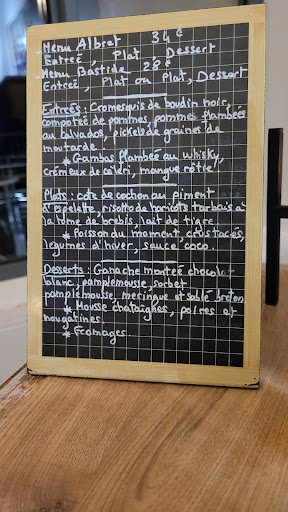 - Menu Albret 34€
Entrée, Plat, Dessert
- Menu Bastide 28€
Entrée, Plat ou Plat, Dessert
Entrées : Cromesquis de boudin noir,
compotée de pommes, pommes flambées
au calvados, pickels de graines de
moutarde
* Gambas flambée au whisky,
crémeux de céleri, mangue rôtie.
Plats : côte de cochon au piment
d'Espelette, risotto de haricots tarbais à
la tome de brebis, lait de tigre
* Poisson du moment, crustacés,
légumes d'hiver, sauce coco.
Desserts : Ganache montée chocolat
blanc, pamplemousse, sorbet
pamplemousse, meringue et sablé breton
* Mousse chataîgnes, poires et
nougatines
* Fromages